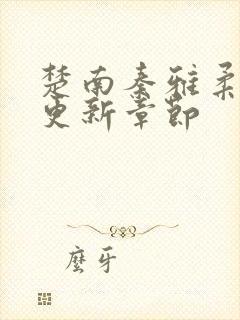 楚南秦雅柔
更新章节
麼牙